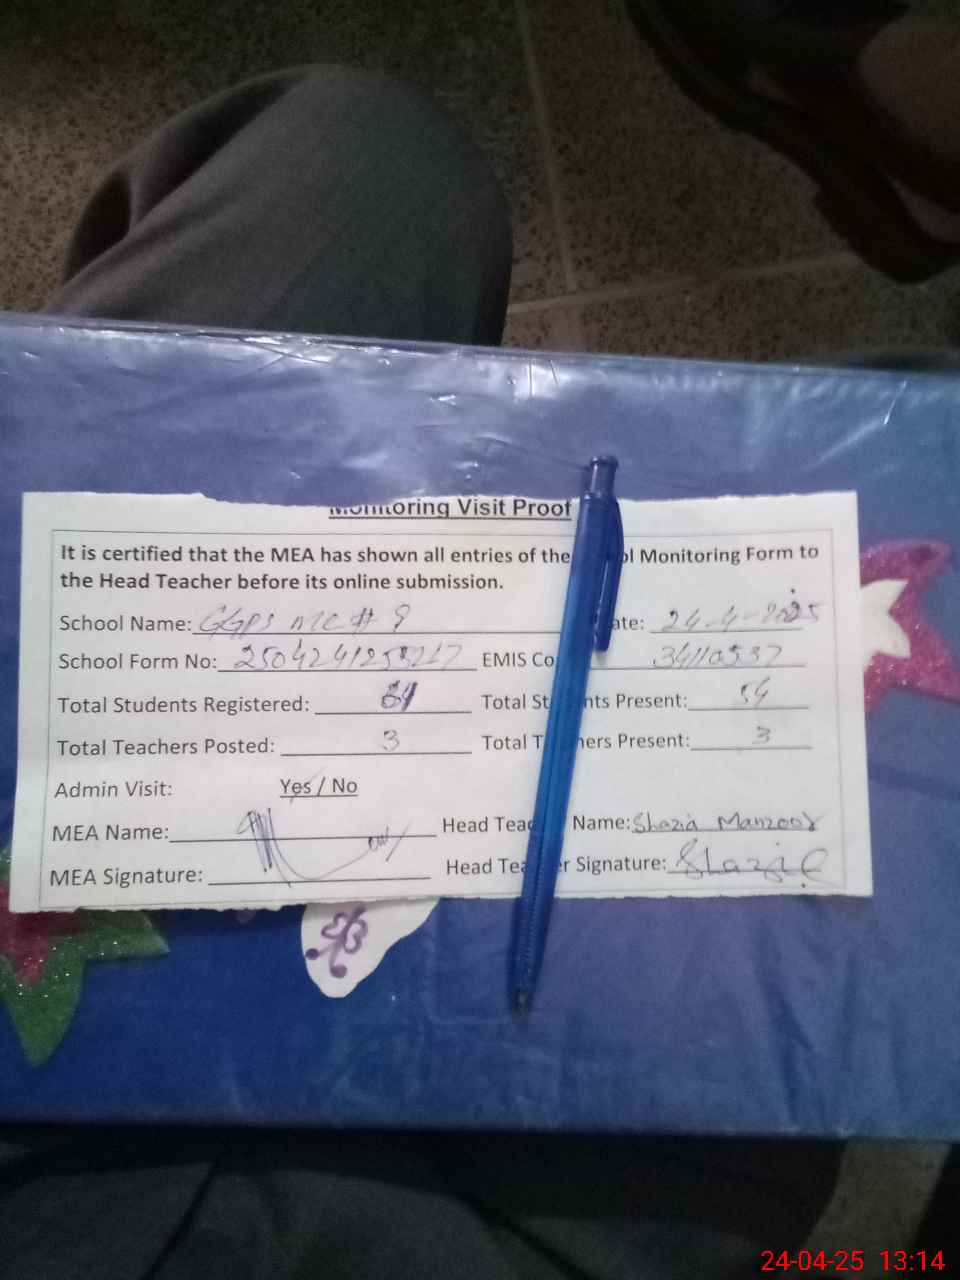 Monitoring Visit Proof
It is certified that the MEA has shown all entries of the ol Monitoring Form to
the Head Teacher before its online submission.
School Name: GGPS MC # 9 ate: 24-4-2025
School Form No: EMIS Co 34110537
Total Students Registered: Total St nts Present: 54
Total Teachers Posted: 3 Total T hers Present: 3
Admin Visit: Yes / No
MEA Name: Head Teac Name: Shazia Manzoor
MEA Signature: Head Tea r Signature: Shazia
24-04-25 13:14